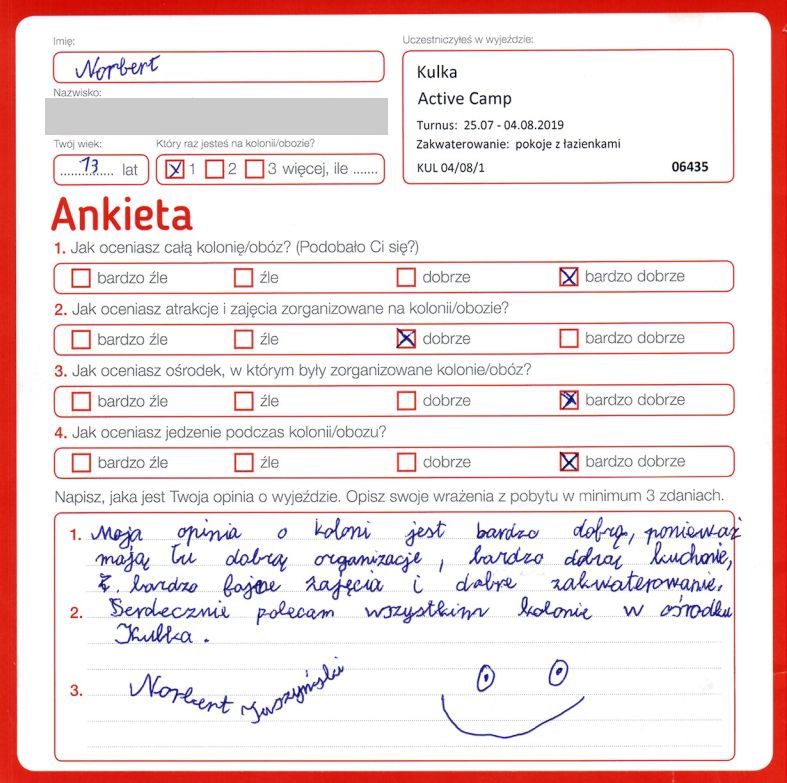 Imię:
Norbert
Nazwisko:
Twój wiek:
13 lat
Który raz jesteś na kolonii/obozie?
1 2 3 więcej, ile .......
Uczestniczyłeś w wyjeździe:
Kulka
Active Camp
Turnus: 25.07 - 04.08.2019
Zakwaterowanie: pokoje z łazienkami
KUL 04/08/1 06435
Ankieta
1. Jak oceniasz całą kolonię/obóz? (Podobało Ci się?)
bardzo źle źle dobrze bardzo dobrze
2. Jak oceniasz atrakcje i zajęcia zorganizowane na kolonii/obozie?
bardzo źle źle dobrze bardzo dobrze
3. Jak oceniasz ośrodek, w którym były zorganizowane kolonie/obóz?
bardzo źle źle dobrze bardzo dobrze
4. Jak oceniasz jedzenie podczas kolonii/obozu?
bardzo źle źle dobrze bardzo dobrze
Napisz, jaka jest Twoja opinia o wyjeździe. Opisz swoje wrażenia z pobytu w minimum 3 zdaniach.
1. Moja opinia o koloni jest bardzo dobrą, ponieważ
mają tu dobrą organizacje, bardzo dobrą kuchonie,
bardzo fajne zajęcia i dobre zakwaterowanie.
2. Serdecznie polecam wszystkim kolonie w ośrodku
Kulka.
3. Norbert